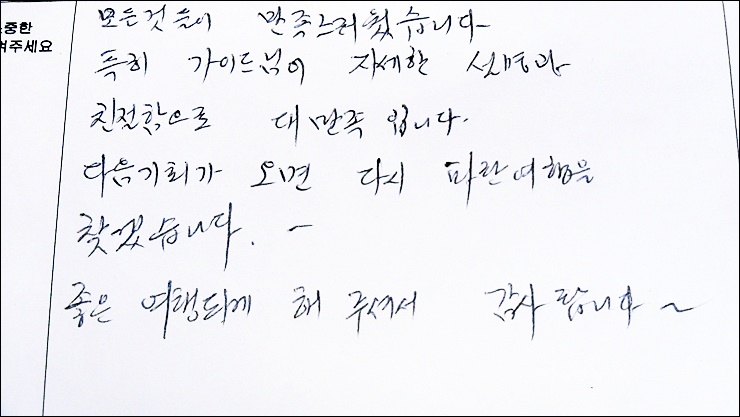 소중한
여주세요
모든것들이 만족스러웠습니다.
특히 가이드님이 자세한 설명과
친절함으로 대만족 입니다.
다음기회가 오면 다시 파란여행을
찾겠습니다. ~
좋은 여행되게 해 주셔서 감사 합니다~